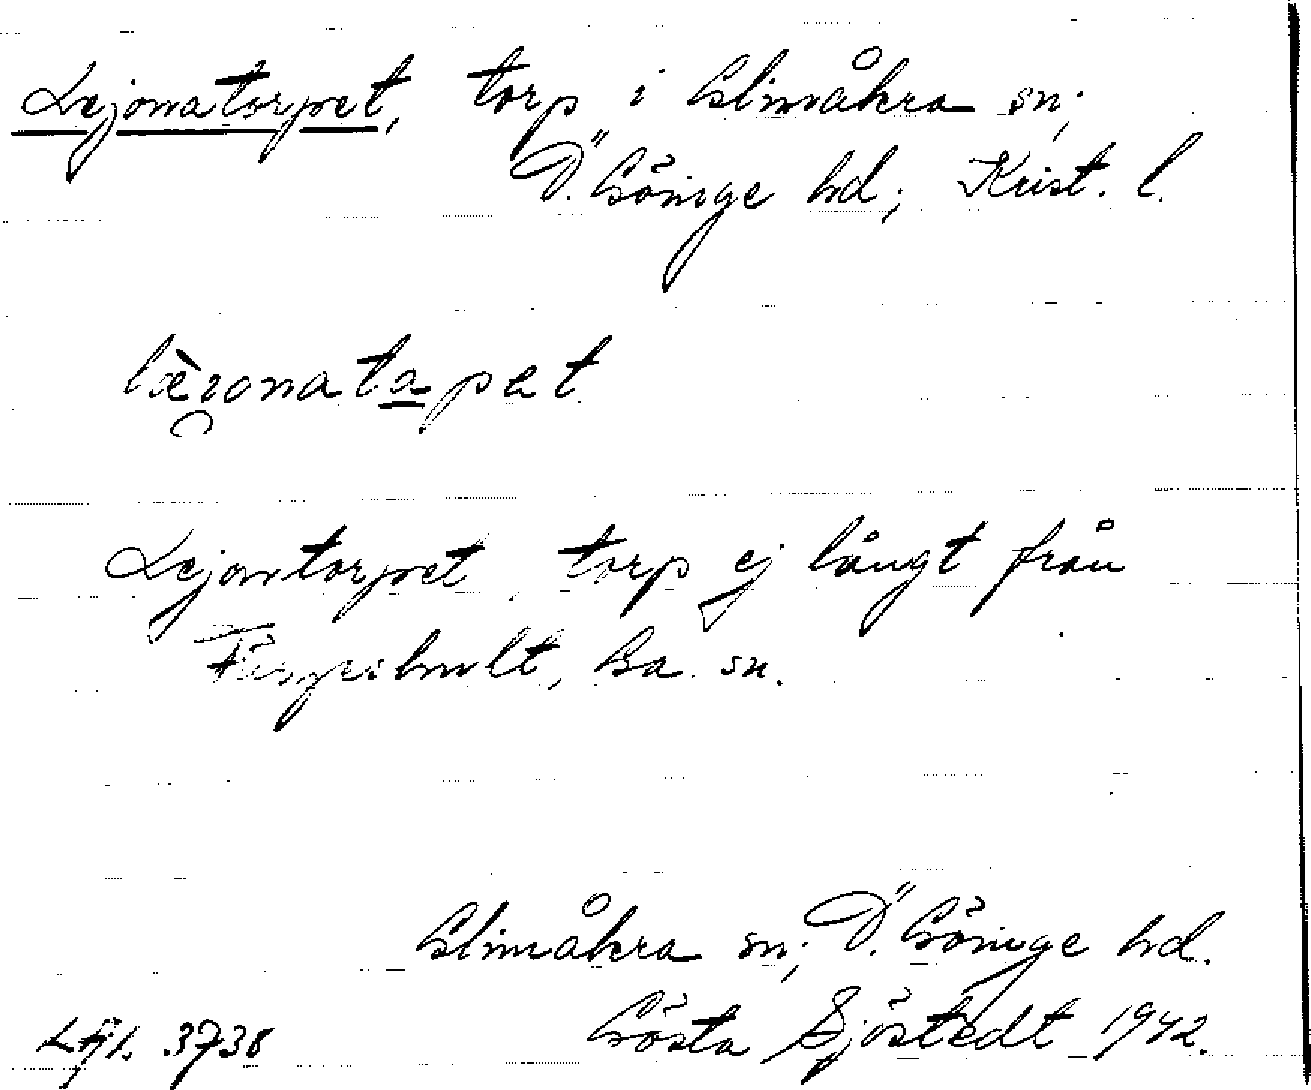 Lejonatorpet, torp i Glimåkra sn;
Ö. Göinge hd; Krist. l.
Lejontorpet, torp ej långt från
Färgeshult, Ga. sn.
Glimåkra sn; Ö. Göinge hd.
Gösta Sjöstedt 1942.
3738